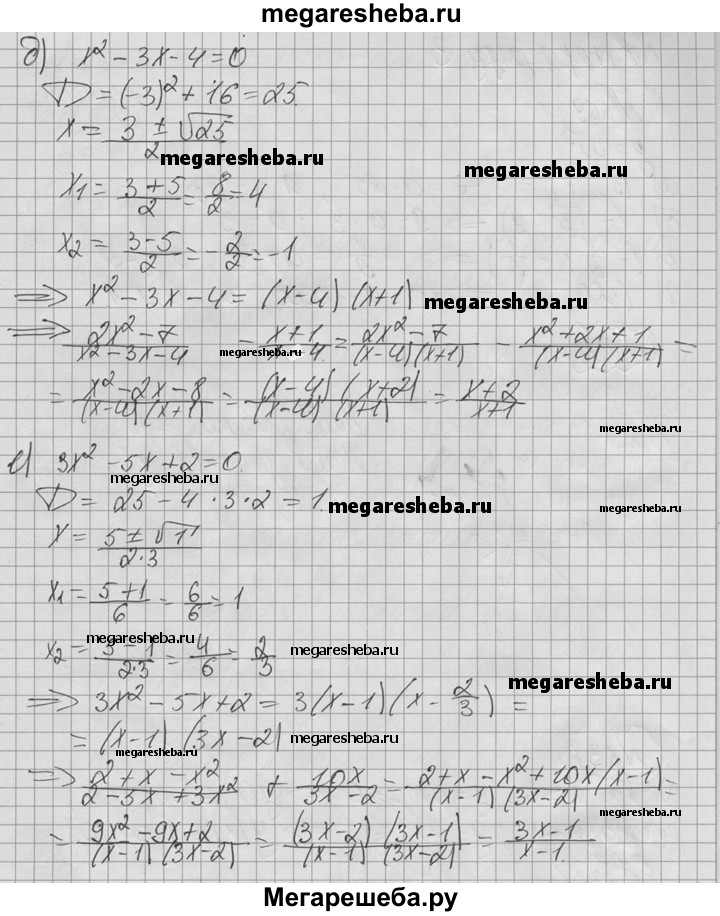 megaresheba.ru
д) x² - 3x - 4 = 0
D = (-3)² + 16 = 25
x = (3 ± √25)/2
megaresheba.ru
megaresheba.ru
x₁ = (3+5)/2 = 8/2 = 4
x₂ = (3-5)/2 = -2/2 = -1
=> x² - 3x - 4 = (x-4)(x+1) megaresheba.ru
=> (2x² - 7)/(x² - 3x - 4) - (x+1)/(x-4) = (2x² - 7)/((x-4)(x+1)) - (x² + 2x + 1)/((x-4)(x+1)) =
megaresheba.ru
= (x² - 2x - 8)/((x-4)(x+1)) = ((x-4)(x+2))/((x-4)(x+1)) = (x+2)/(x+1)
megaresheba.ru
е) 3x² - 5x + 2 = 0
megaresheba.ru
D = 25 - 4·3·2 = 1 megaresheba.ru
megaresheba.ru
x = (5 ± √1)/(2·3)
x₁ = (5+1)/6 = 6/6 = 1
megaresheba.ru
x₂ = (5-1)/(2·3) = 4/6 = 2/3 megaresheba.ru
=> 3x² - 5x + 2 = 3(x-1)(x - 2/3) =
megaresheba.ru
= (x-1)(3x-2) megaresheba.ru
megaresheba.ru
=> (2 + x - x²)/(2 - 5x + 3x²) + 10x/(3x-2) = (2 + x - x² + 10x(x-1))/((x-1)(3x-2)) =
megaresheba.ru
= (9x² - 9x + 2)/((x-1)(3x-2)) = ((3x-2)(3x-1))/((x-1)(3x-2)) = (3x-1)/(x-1)
Мегарешеба.ру